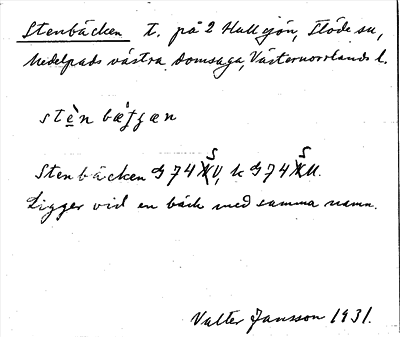 Stenbäcken t. på 2 Hullsjön, Stöde sn,
Medelpads västra domsaga, Västernorrlands l.
Stenbäcken G 74 SV, k G 74 S
Ligger vid en bäck med samma namn.
Valter Jansson 1931.